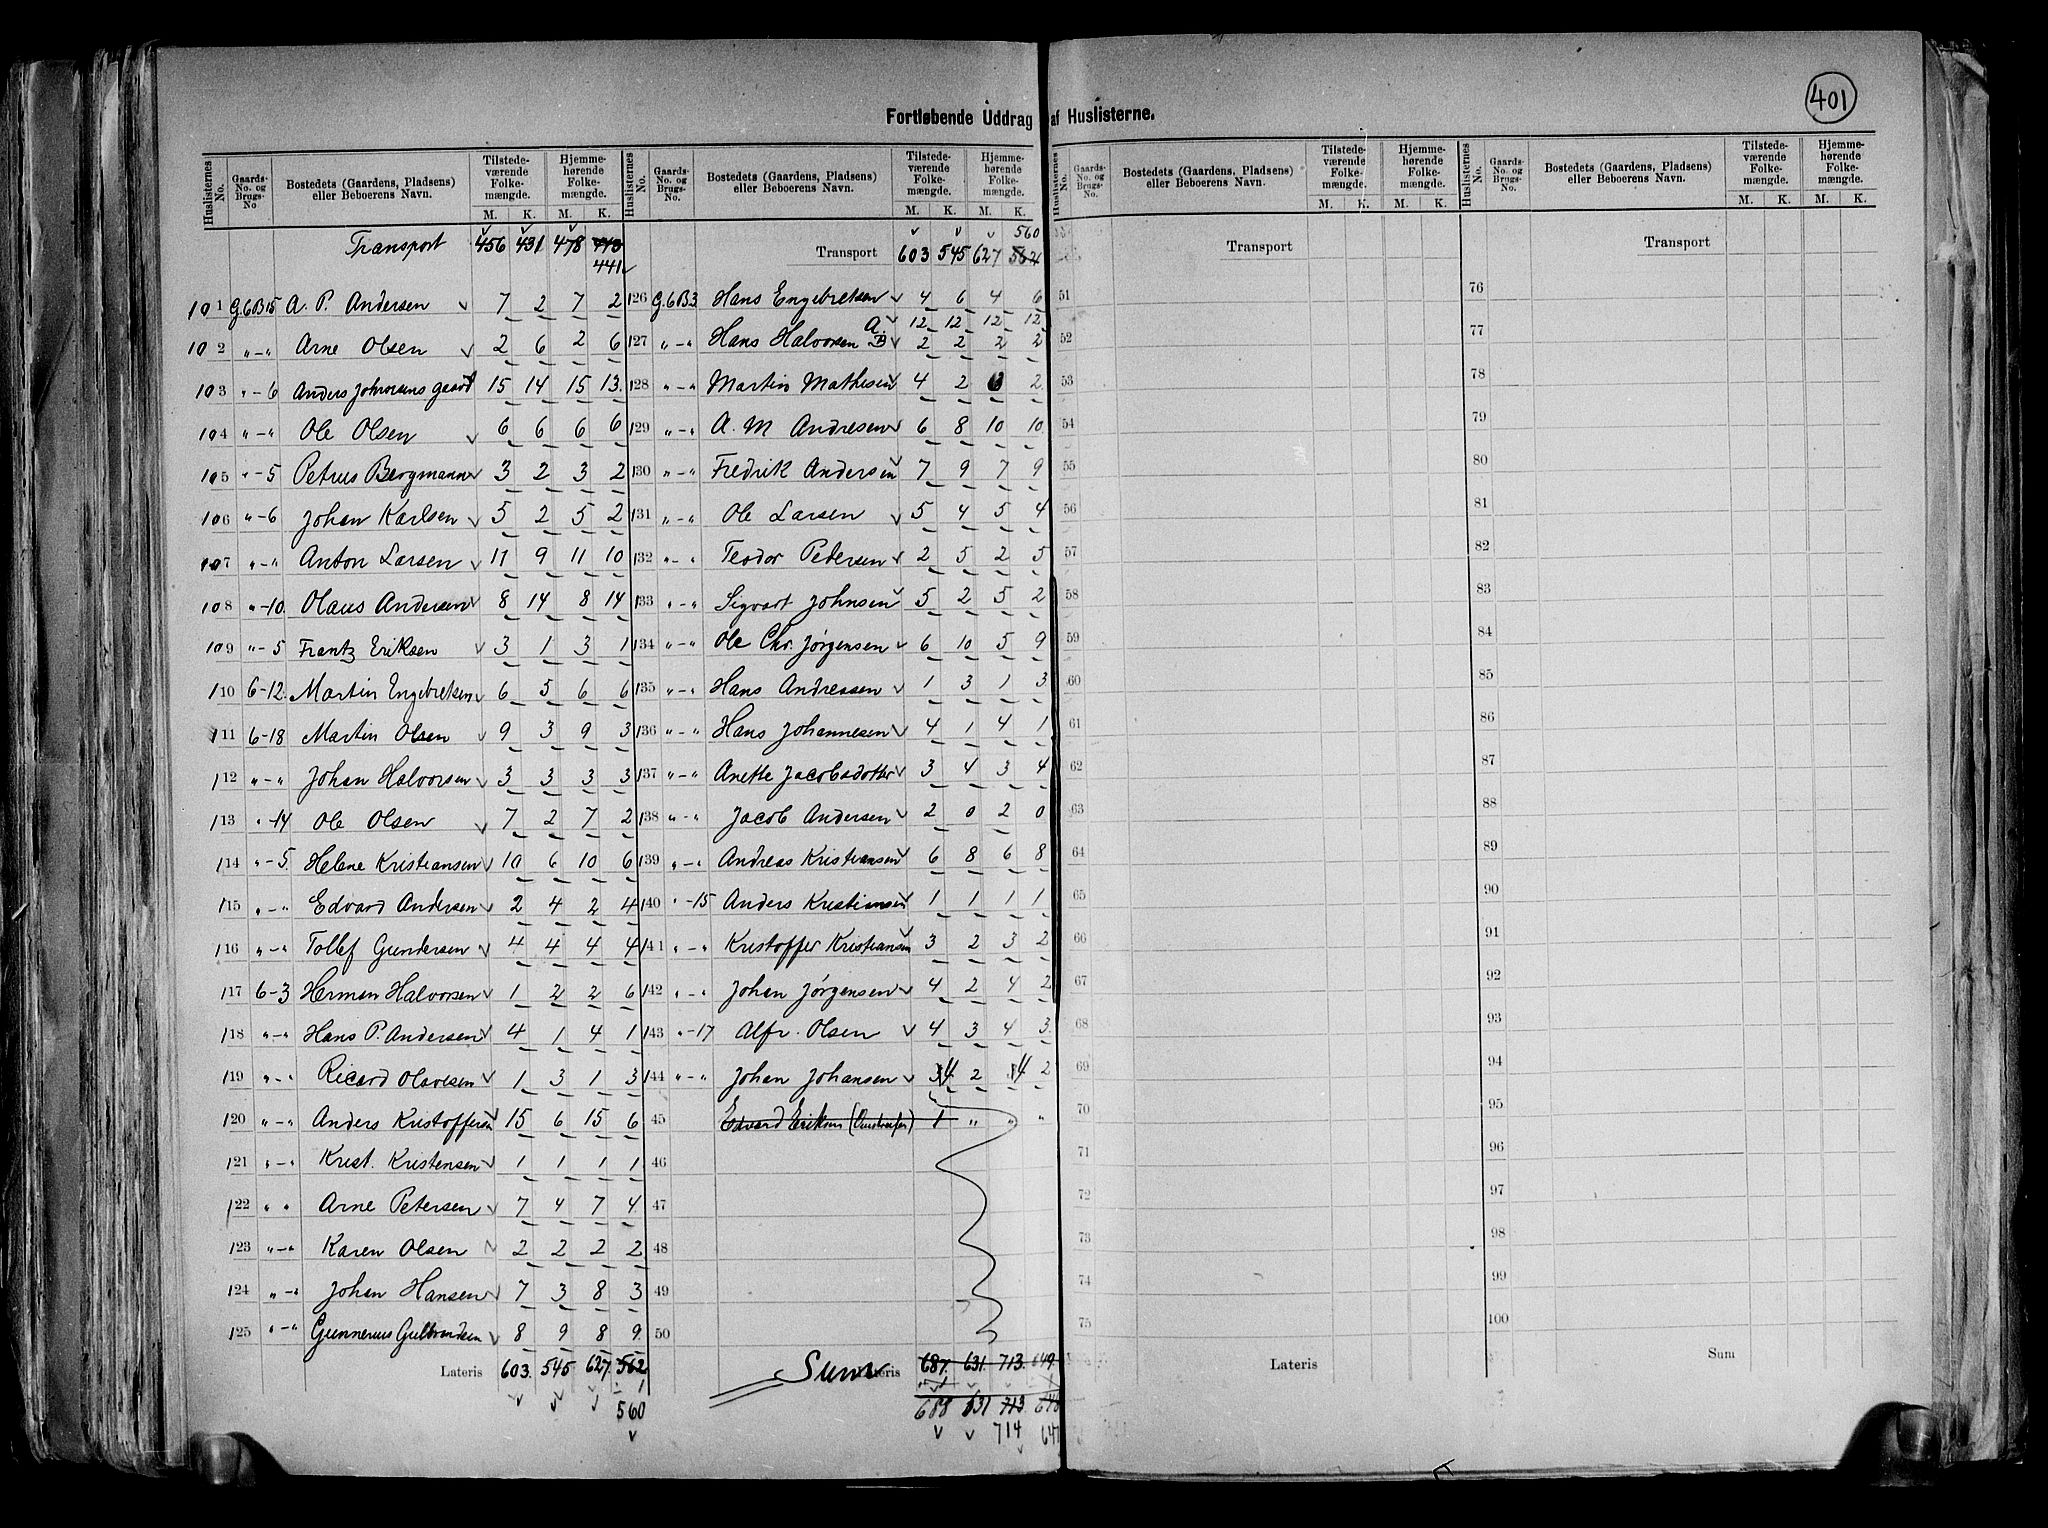 401
Fortløbende Uddrag af Huslisterne.
Huslisternes No. | Gaards-No. og Brugs-No | Bostedets (Gaardens, Pladsens) eller Beboerens Navn. | Tilstedeværende Folkemængde. M. K. | Hjemmehørende Folkemængde. M. K.
Transport 456 431 478 441
101 G.6B15 A. P. Andersen 7 2 7 2
102 „-„ Arne Olsen 2 6 2 6
103 „-6 Anders Johnsens gaard 15 14 15 13
104 „-„ Ole Olsen 6 6 6 6
105 „-5 Petrus Bergmann 3 2 3 2
106 „-6 Johan Karlsen 5 2 5 2
107 „-„ Anton Larsen 11 9 11 10
108 „-10. Olaus Andersen 8 14 8 14
109 „-5 Frantz Eriksen 3 1 3 1
110 6-12. Martin Engebretsen 6 5 6 6
111 6-18 Martin Olsen 9 3 9 3
112 „-„ Johan Halvorsen 3 3 3 3
113 „-14 Ole Olsen 7 2 7 2
114 „-5. Helene Kristiansen 10 6 10 6
115 „-„ Edvard Andersen 2 4 2 4
116 „-„ Tollef Gundersen 4 4 4 4
117 6-3 Herman Halvorsen 1 2 2 6
118 „-„ Hans P. Andersen 4 1 4 1
119 „-„ Ricard Olavesen 1 3 1 3
120 „-„ Anders Kristoffersen 15 6 15 6
121 „-„ Krist. Kristensen 1 1 1 1
122 „ „ Arne Petersen 7 4 7 4
123 „-„ Karen Olsen 2 2 2 2
124 „-„ Johan Hansen 7 3 8 3
125 „-„ Gunnerius Gulbrandsen 8 9 8 9
Lateris 603. 545 627. 562
1
560
Huslisternes No. | Gaards-No. og Brugs-No. | Bostedets (Gaardens, Pladsens) eller Beboerens Navn. | Tilstedeværende Folkemængde. M. K. | Hjemmehørende Folkemængde. M. K.
560
Transport 603 545 627 562
126 G.6B3. Hans Engebretsen 4 6 4 6
A. 12 12 12 12
127 „-„ Hans Halvorsen B 2 2 2 2
128 „-„ Martin Mathisen 4 2 2
129 „-„ A. M Andresen 6 8 10 10
130 „-„ Fredrik Andersen 7 9 7 9
131 „-„ Ole Larsen 5 4 5 4
132 „-„ Teodor Pedersen 2 5 2 5
133 „-„ Sigvart Johnsen 5 2 5 2
134 „-„ Ole Chr. Jørgensen 6 10 5 9
135 „-„ Hans Andreasen 1 3 1 3
136 „-„ Hans Johannesen 4 1 4 1
137 „-„ Anette Jacobsdotter 3 4 3 4
138 „-„ Jacob Andersen 2 0 2 0
139 „-„ Andreas Kristiansen 6 8 6 8
140 „-15 Anders Kristiansen 1 1 1 1
141 „-„ Kristoffer Kristiansen 3 2 3 2
142 „-„ Johan Jørgensen 4 2 4 2
143 „-17 Alfr. Olsen 4 3 4 3
144 „-„ Johan Johansen 4 2 4 2
45 Edvard Eriksen 1 „ „ „
46
47
48
49
50
Sum Lateris 687. 631. 713. 649.
688 631 713. 648
714 647
Huslisternes No. | Gaards-No. og Brugs-No. | Bostedets (Gaardens, Pladsens) eller Beboerens Navn. | Tilstedeværende Folkemængde. M. K. | Hjemmehørende Folkemængde. M. K.
Transport
51
52
53
54
55
56
57
58
59
60
61
62
63
64
65
66
67
68
69
70
71
72
73
74
75
Lateris
Huslisternes No. | Gaards-No. og Brugs-No. | Bostedets (Gaardens, Pladsens) eller Beboerens Navn. | Tilstedeværende Folkemængde. M. K. | Hjemmehørende Folkemængde. M. K.
Transport
76
77
78
79
80
81
82
83
84
85
86
87
88
89
90
91
92
93
94
95
96
97
98
99
100
Sum